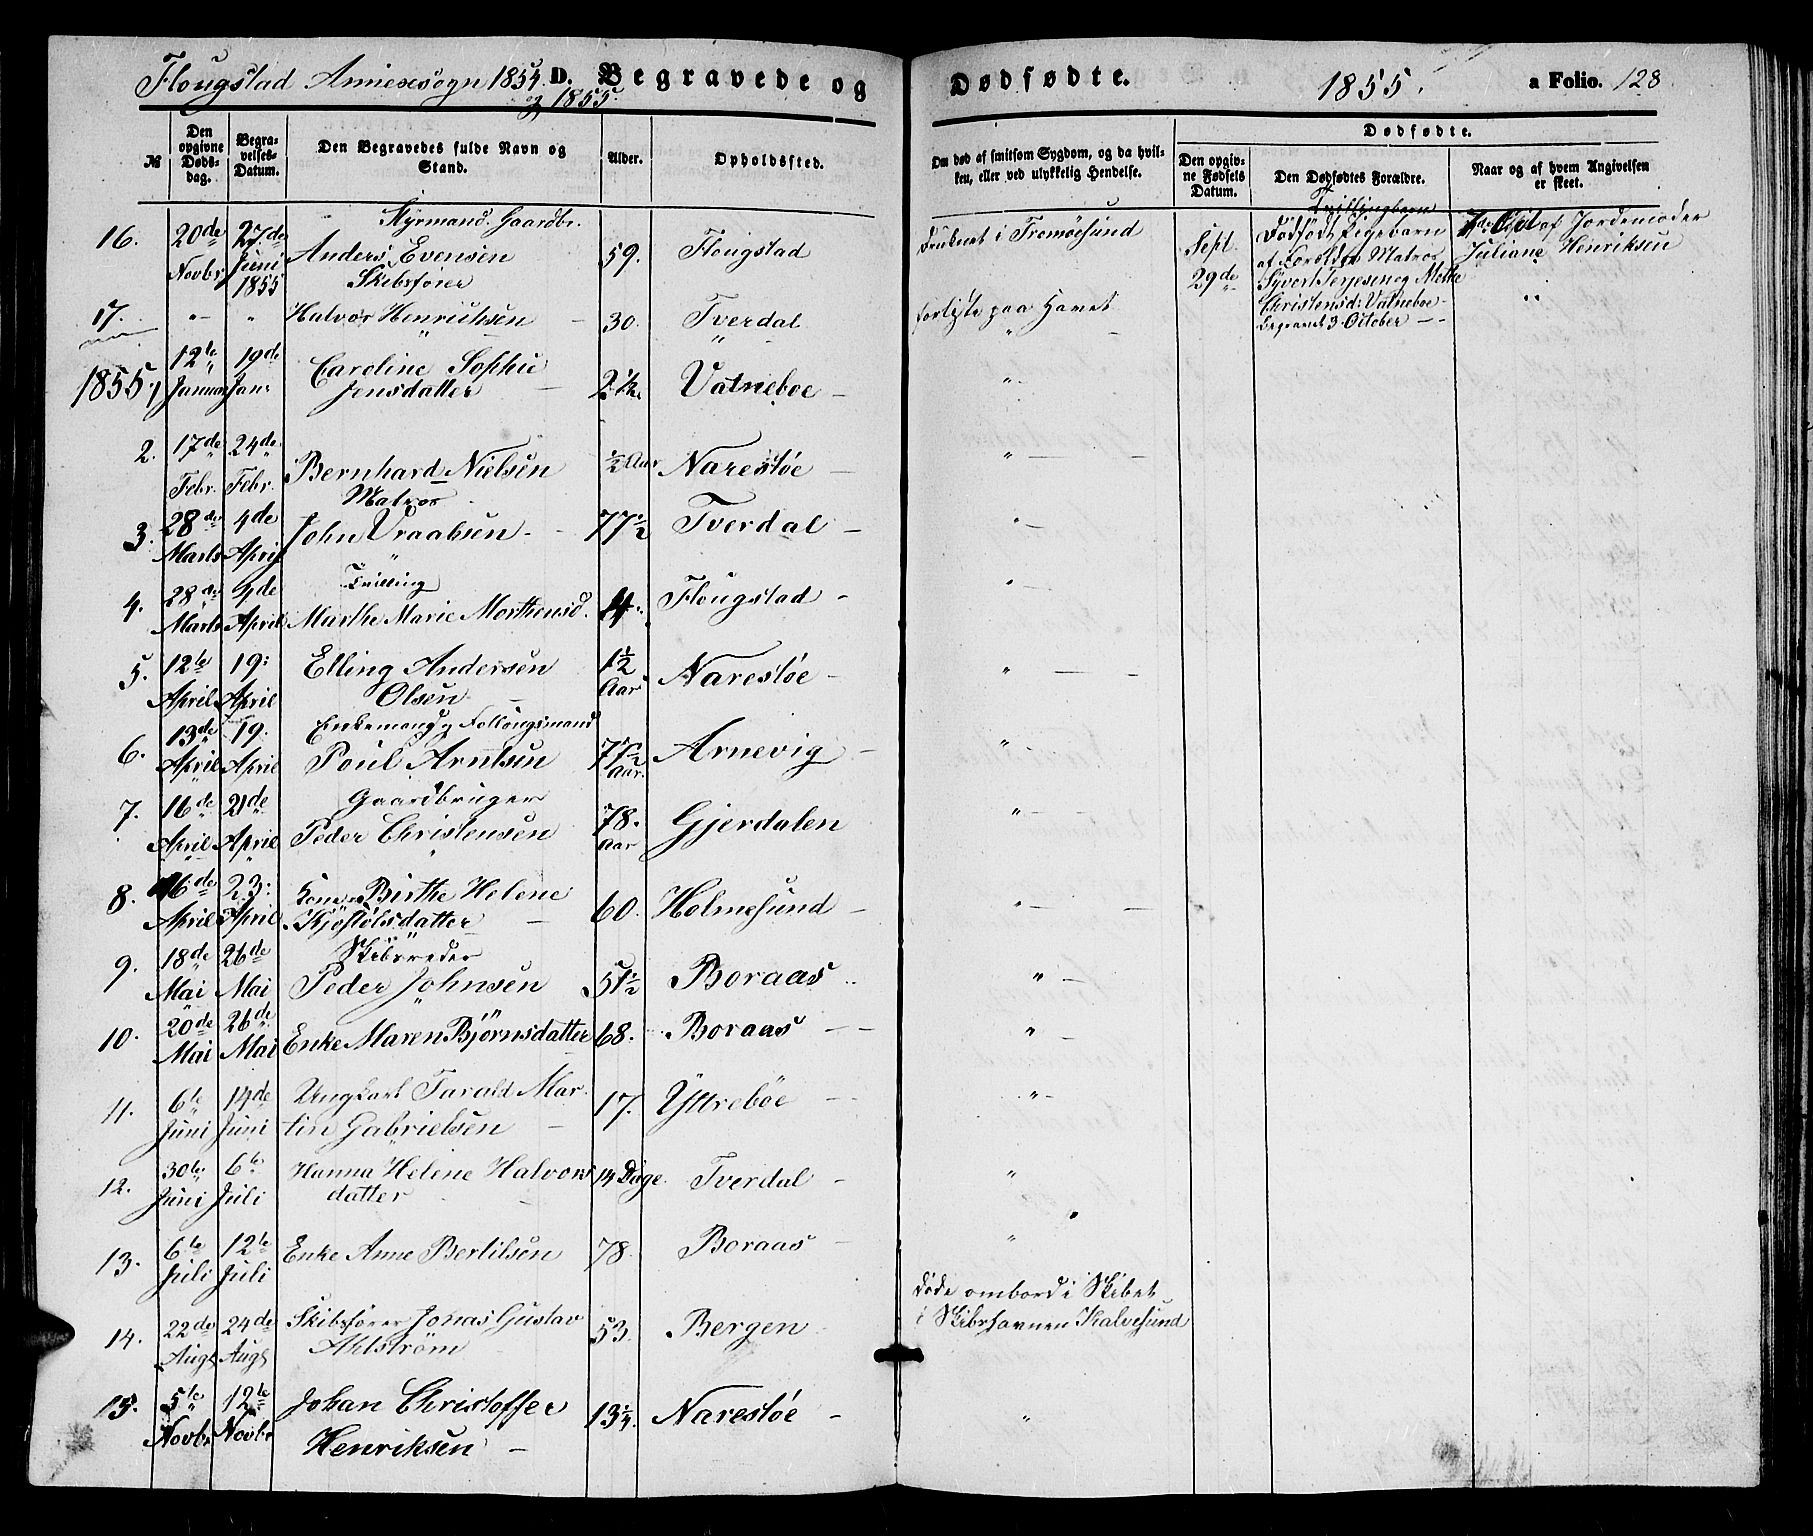 Flougstad Annexsogn 1854. D. Begravede og
og 1855.
Dødfødte. 1855. a Folio. 128
№ Den opgivne Døds-dag. Begra-velses-Datum. Den Begravedes fulde Navn og Stand. Alder. Opholdssted.
Om død af smitsom Sygdom, og da hvil-ken, eller ved ulykkelig Hendelse.
Dødfødte.
Den opgiv-ne Fødsels Datum. Den Dødfødtes Forældre. Naar og af hvem Angivelsen er skeet.
Styrmand. Gaardbr.
16. 20de Novbr 27de Juni 1855 Anders Evensen 59. Flougstad Druknet i Tromøesund
Skibsfører
17. " " Halvor Henrichsen 30. Tverdal forliste paa Havet
Sept. 29de
Tvillingbarn
Dødfødt Pigebarn
af Forældre Matros
Syvert Terjesen og Mette
Christensd: Vatneboe
Begravet 3 October
af Jordemoder
Juliane Henriksen
1855. 1 12te Januar 19de Jan: Caroline Sophie
Jensdatter 2½. Vatneboe "
2. 17de Febr. 24de Febr. Bernhard Nielsen ½ Aar Narestøe "
Matros
3. 28de Marts 4de April John Vraalsen 77½ Tverdal "
Tvilling
4. 28de Marts 4de April Marthe Marie Morthensd. 4. Flougstad "
5. 12te April 19: April Elling Andersen
Olsen 1½ Aar Narestøe "
Enkemand og Follougsmand
6. 13de April 19. April Poul Arntsen 77½ Aar. Arnevig "
Gaardbruger
7. 16de April 21de April Peder Christensen 78. Aar Gjerdalen "
8. 16de April 23: April Kone Birthe Helene
Kjøstølsdatter 60. Holmesund "
Skibsreder
9. 18de Mai 26de Mai Peder Johnsen 51½ Boraas "
10. 20de Mai 26de Mai Enke Maren Bjørnsdatter 68. Boraas "
11. 6te Juni 14de Juni Ungkarl Tarald Mar-
tin Gabrielsen 17. Yttrebøe "
12. 30te Juni 6te Juli Hanna Heline Halvors
datter 14 Dage. Tverdal "
13. 6te Juli 12te Juli Enke Anne Bertilsen 78. Boraas "
14. 22de Augt 24de Augt Skibsfører Jonas Gustav
Ahlstrøm 53. Bergen
Døde ombord i Skibet
i Skibshavnen Kalvesund
15. 5te Novbr 12te Novbr Johan Christoffer
Henriksen 13¼. Narestøe "